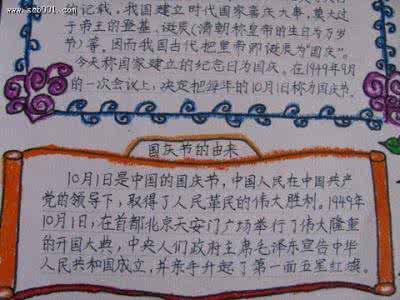 www.sab001.com
记载,我国建立时代国家喜庆大事,莫大过
于帝王的登基,诞辰(清朝称皇帝的生日为万岁
节)等。因而我国古代把皇帝即诞辰为“国庆”。
今天称国家建立的纪念日为国庆。在1949年9月
的一次会议上,决定把每年的10月1日称为国庆节。
国庆节的由来
10月1日是中国的国庆节,中国人民在中国共产
党的领导下,取得了人民革民的伟大胜利。1949年
10月1日,在首都北京天安门广场举行了伟大隆重
的开国大典,中央人们政府主席毛泽东宣告中华
人民共和国成立,并亲手升起了第一面五星红旗。